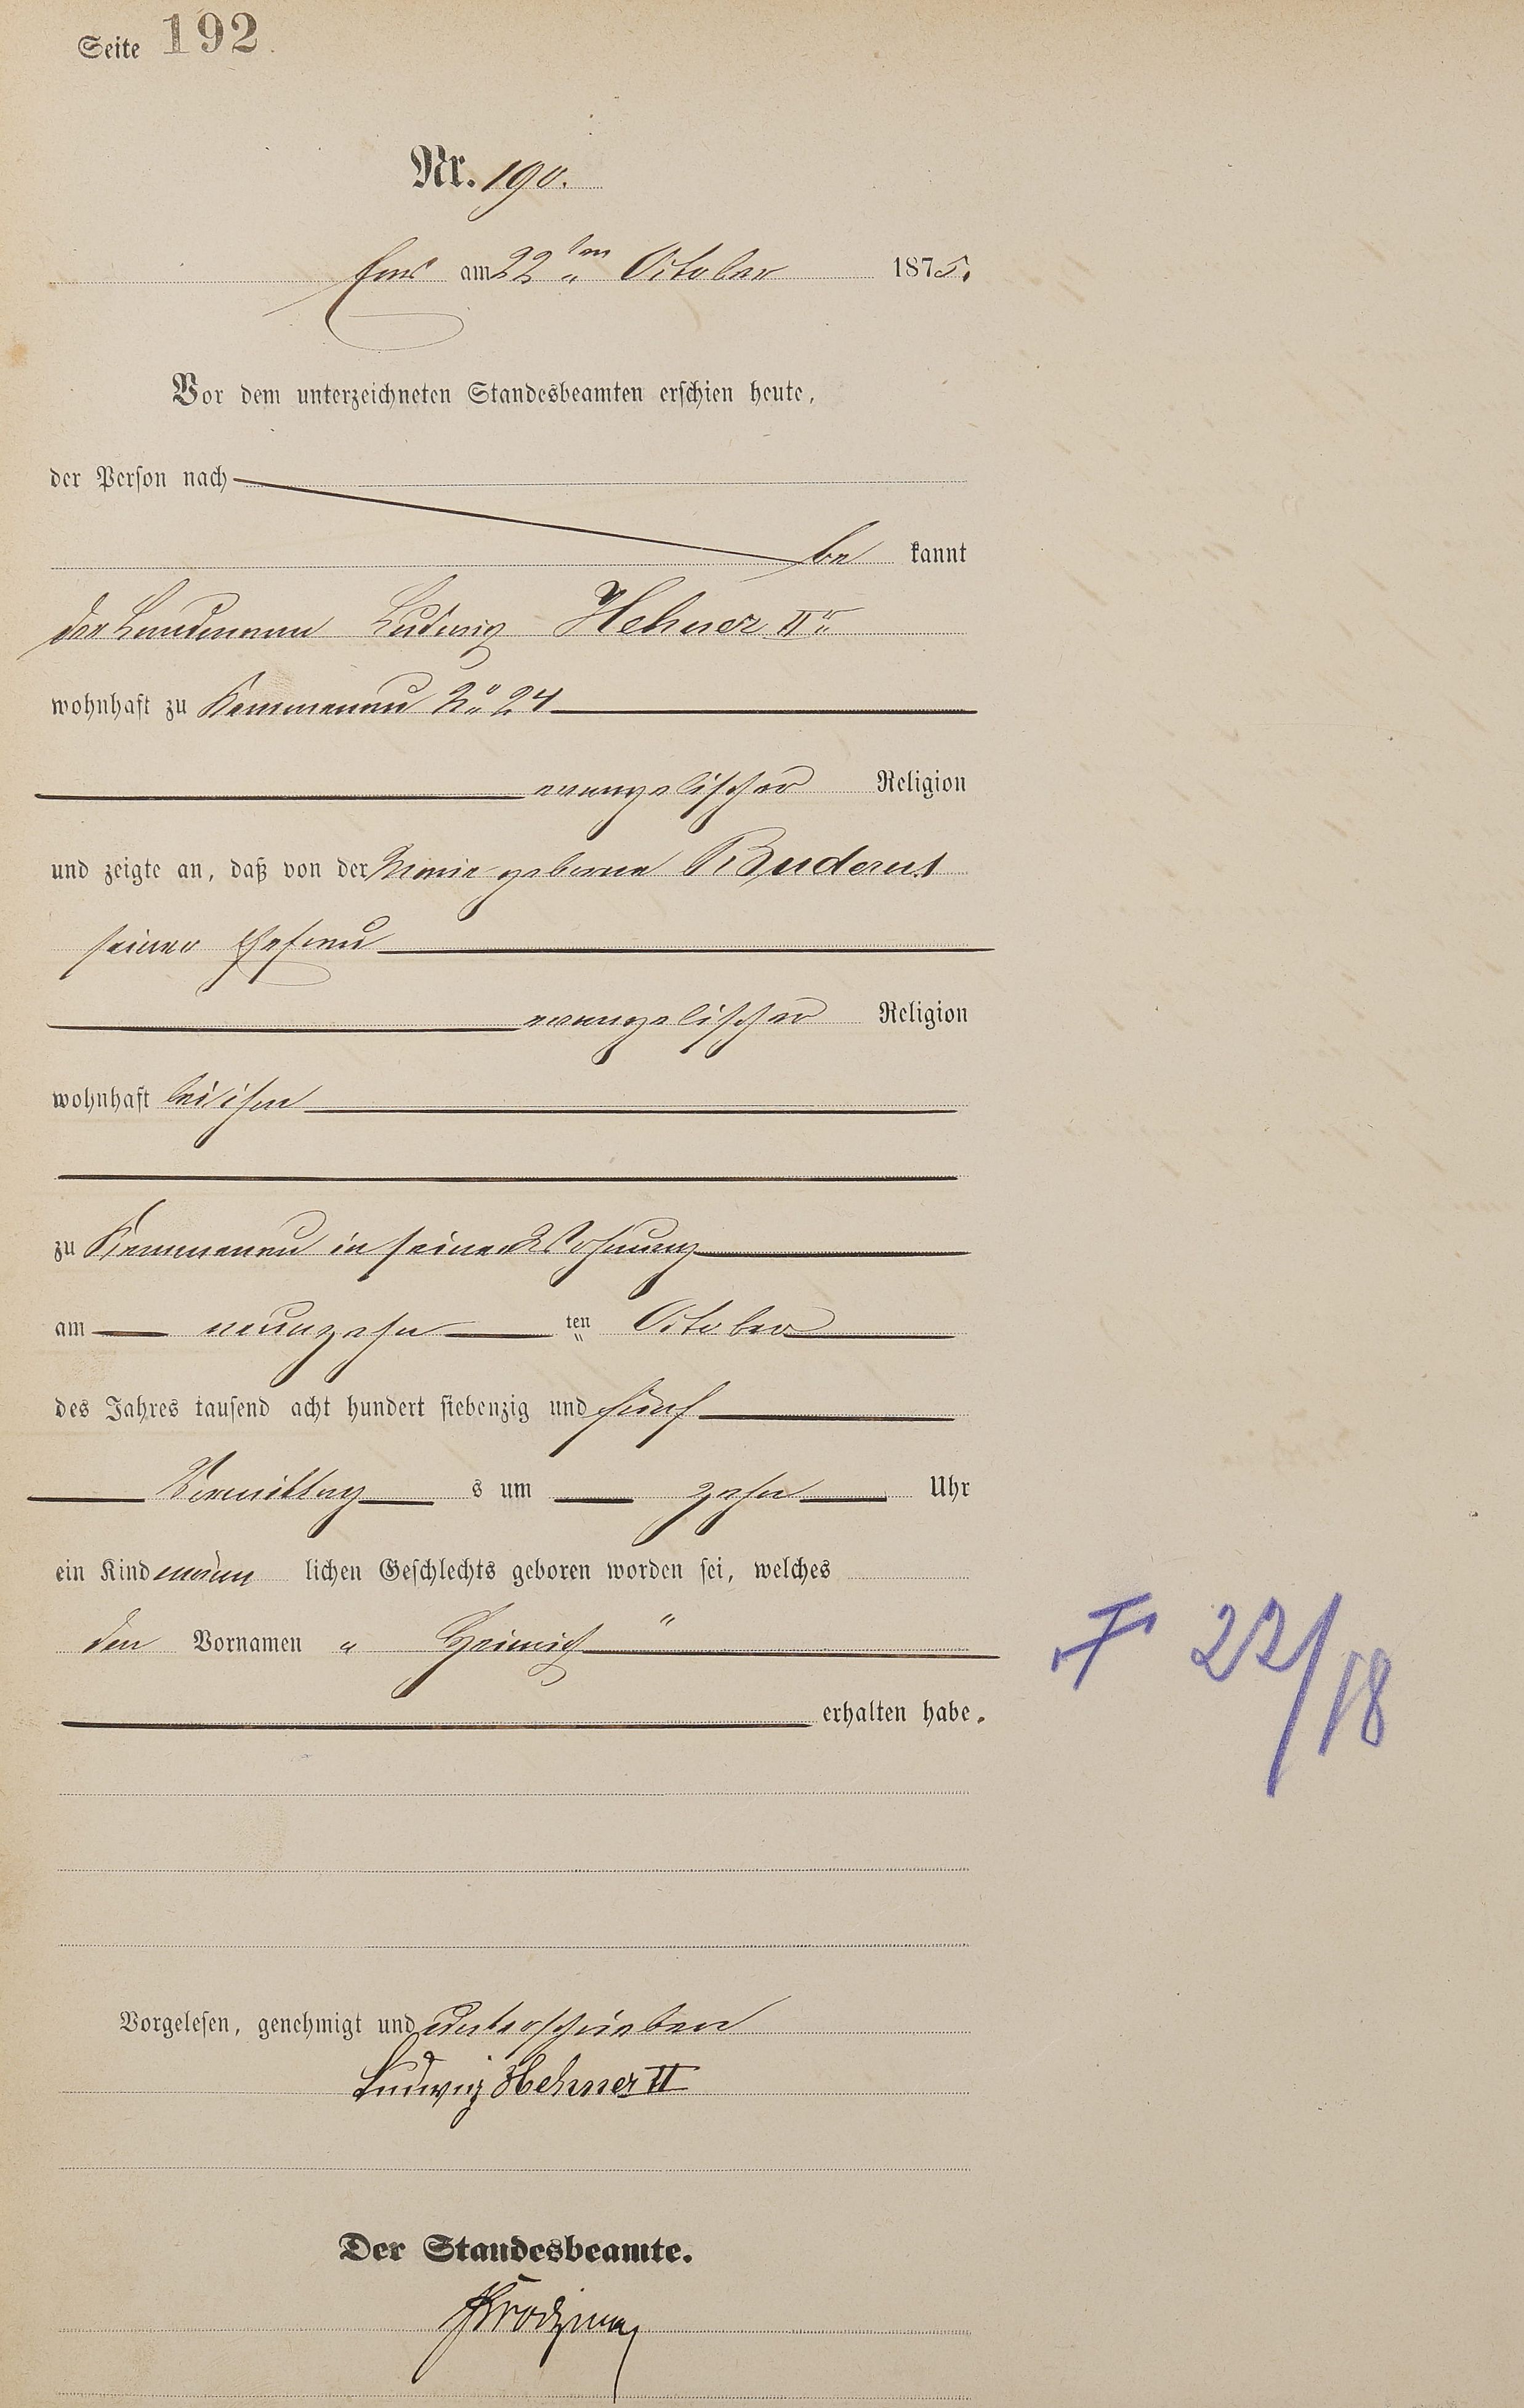 Seite 192.
Nr. 190.
Ems am 22ten October 1875.
Vor dem unterzeichneten Standesbeamten erschien heute,
der Person nach
be kannt
der Landmann Ludwig Hehner IIr
wohnhaft zu Kemmenau No 24
evangelischer Religion
und zeigte an, daß von der Marie geborne Buderus
seiner Ehefrau
evangelischer Religion
wohnhaft bei ihm
zu Kemmenau in seiner Wohnung
am neunzehn ten October
des Jahres tausend acht hundert siebenzig und fünf
Vormittag s um zehn Uhr
ein Kind männ lichen Geschlechts geboren worden sei, welches
den Vornamen „ Heinrich "
erhalten habe.
F 22/18
Vorgelesen, genehmigt und unterschrieben
Ludwig Hehner II
Der Standesbeamte.